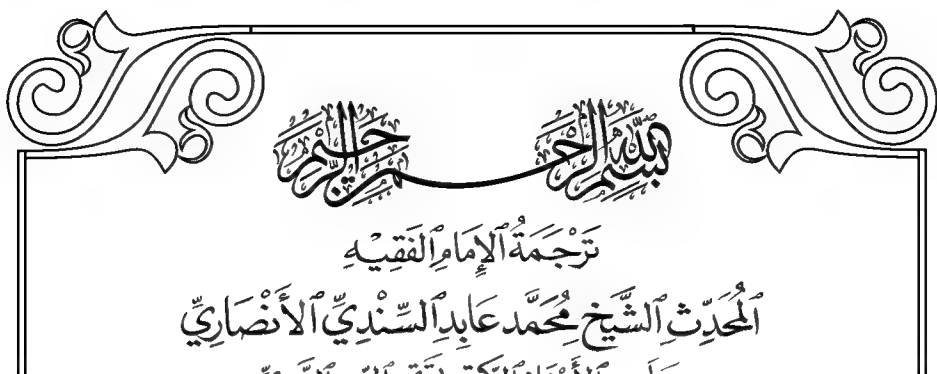 بسم الله الرحمن الرحيم
تَرْجَمَةُ ٱلإِمَامِ ٱلفَقِيْهِ
ٱلمُحَدِّثِ ٱلشَّيْخِ مُحَمَّد عَابِد ٱلسِّنْدِيِّ ٱلأَنْصَارِيِّ